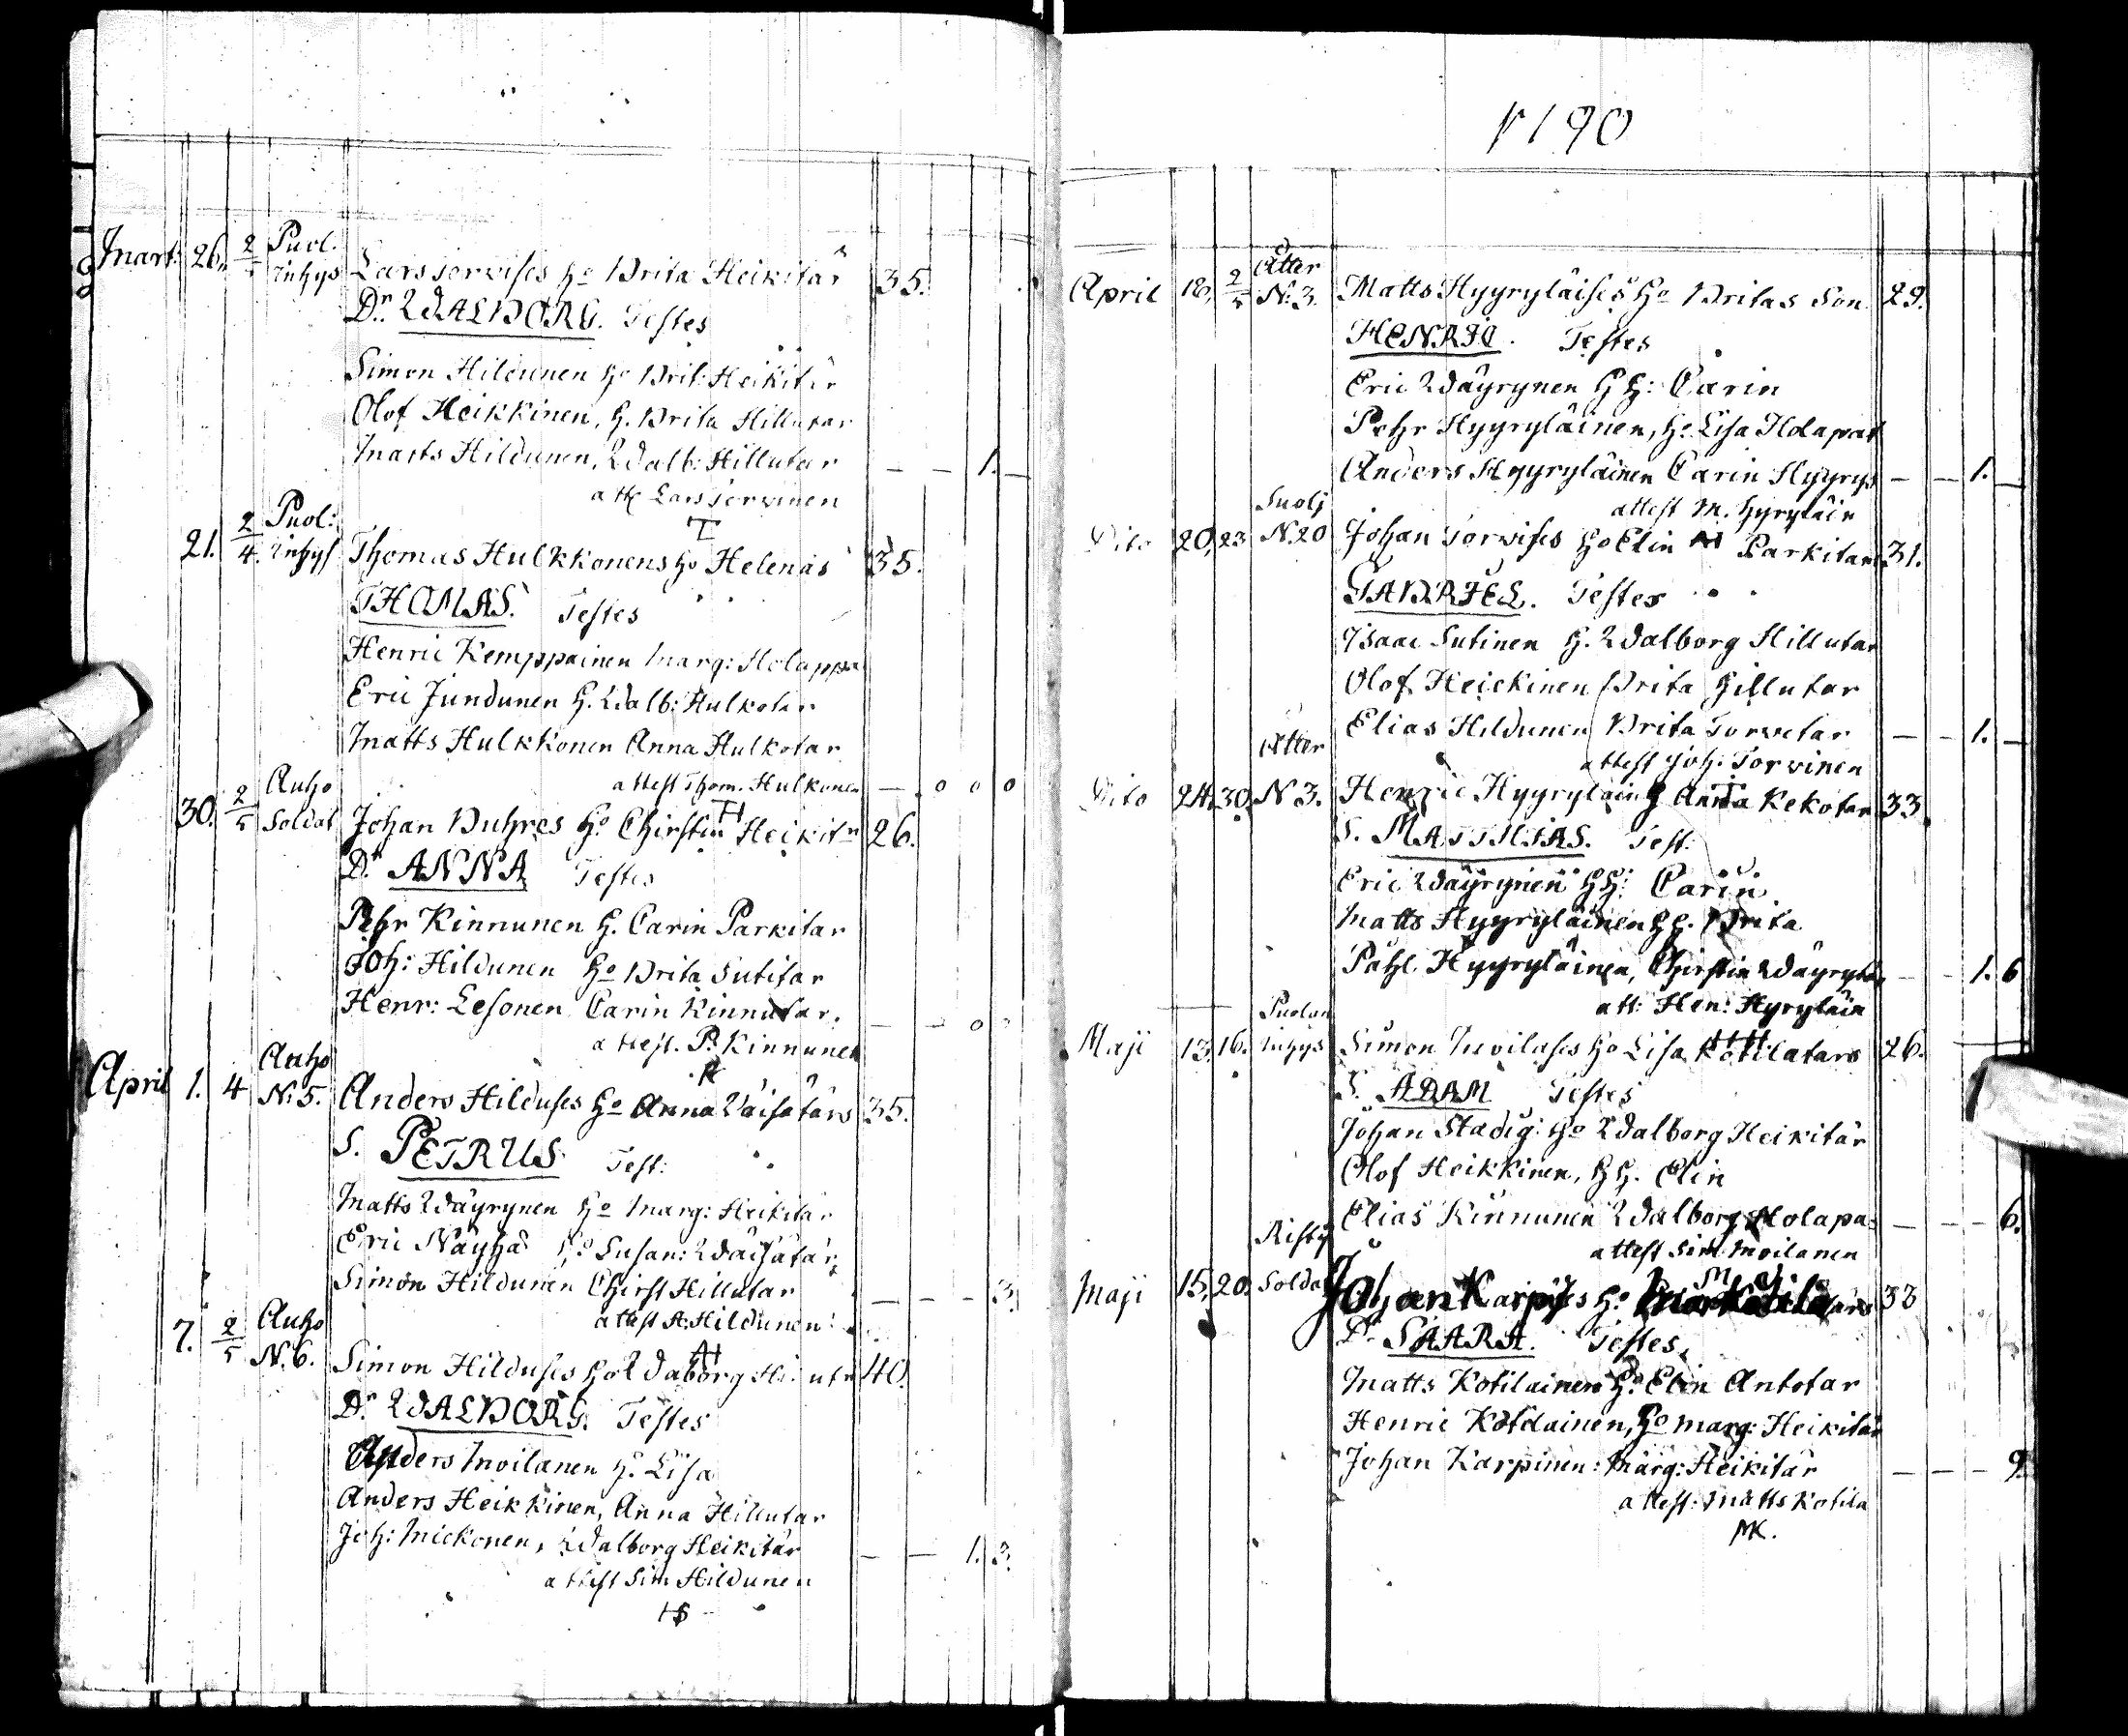 Mart: 26. 2/5 Puol. Inhys Lars Torvises Ho Brita Heikitär 35.
Dr. WALBORG. Testes
Simon Hildunen Ho Brit: Heikitär
Olof Heikkinen, H. Brita Hillutar
Matts Hildunen, Walb: Hillutar — — 1. —
att Lars Torvinen
T
21. 2/4. Puol: Inhys Thomas Hulkkonens Ho Helenas 35.
THOMAS. Testes
Henric Kemppainen Marg: Holappa
Eric Jundunen H. Walb: Hulkotar
Matts Hulkkonen Anna Hulkotar
attest Thom. Hulkonen — 0 0 0
TH
30. 2/5 Auho Soldat Johan Buhres Ho Chirstin Heikitr 26.
Dr ANNA Testes
Pehr Kinnunen H. Carin Parkitar
Joh: Hildunen Ho Brita Sutitar
Henr: Lesonen Carin Kinnutar. — — 0
attest. P. Kinnunen
April 1. 4 Auho N:5. Anders Hilduses Ho Anna Väisätärs 35.
S. PETRUS Test:
Matts Wäyrynen Ho Marg: Heikitär
Eric Näyhä Ho Susan: Wäisätär
Simon Hildunen Chirst Hillutar — — — 3.
attest A. Hildunen
AH
7. 2/5 Auho N. 6. Simon Hilduses Ho Waborg 40.
Dr. WALBORG. Testes
Anders Moilanen H. Lisa
Anders Heikkinen, Anna Hillutar
Joh: Mickonen, Walborg Heikitär — — 1. 3.
attest Sim Hildunen
HS
1790
April 18, 2/5 Otter N:3. Matts Hyyryläises Ho Britas Son 29.
HENRIC. Testes
Eric Wäyrynen H H: Carin
Pehr Hyyryläinen, Ho Lisa Holapat
Anders Hyyryläinen Carin Hyyrys — — 1. —
attest M. Hyryläin
Dito 20, 23 Suolj N. 20 Johan Torvises Ho Elin Parkitars 31.
GABRIEL. Testes
Isaac Sutinen H. Walborg Hillutar
Olof Heickinen Brita Hillutar
Elias Hildunen Brita Torvetar — — 1. —
attest Joh: Torvinen
Dito 24, 30, Otter N 3. Henric Hyyryläin H Anna Kekotar 33
S. MATTHIAS. Test:
Eric Wäyrynen H H: Carin
Matts Hyyryläinen H H. Brita
Påhl Hyyryläinen, Chirstin Wäyrytär — — 1. 6
att: Hen: Hyryläin
Maji 13, 16. Puolan Inhys Simon Moilases Ho Lisa Kotilatars 26.
S. ADAM Testes
Johan Stadig: Ho Walborg Heikitär
Olof Heikkinen, H H. Elin
Elias Kinnunen Walborg Holapa: — — — 6.
attest Sim Moilanen
SM
Maji 15, 20. Risty Soldat Johan Karpises Ho 33
Dr SAARA. Testes
Matts Kotilainen Ho Elin Antotar
Henric Kotilainen, Ho Marg: Heikitär
Johan Karpinen: Marg: Heikitär — — — 9.
attest: Matts Kotila
MK.